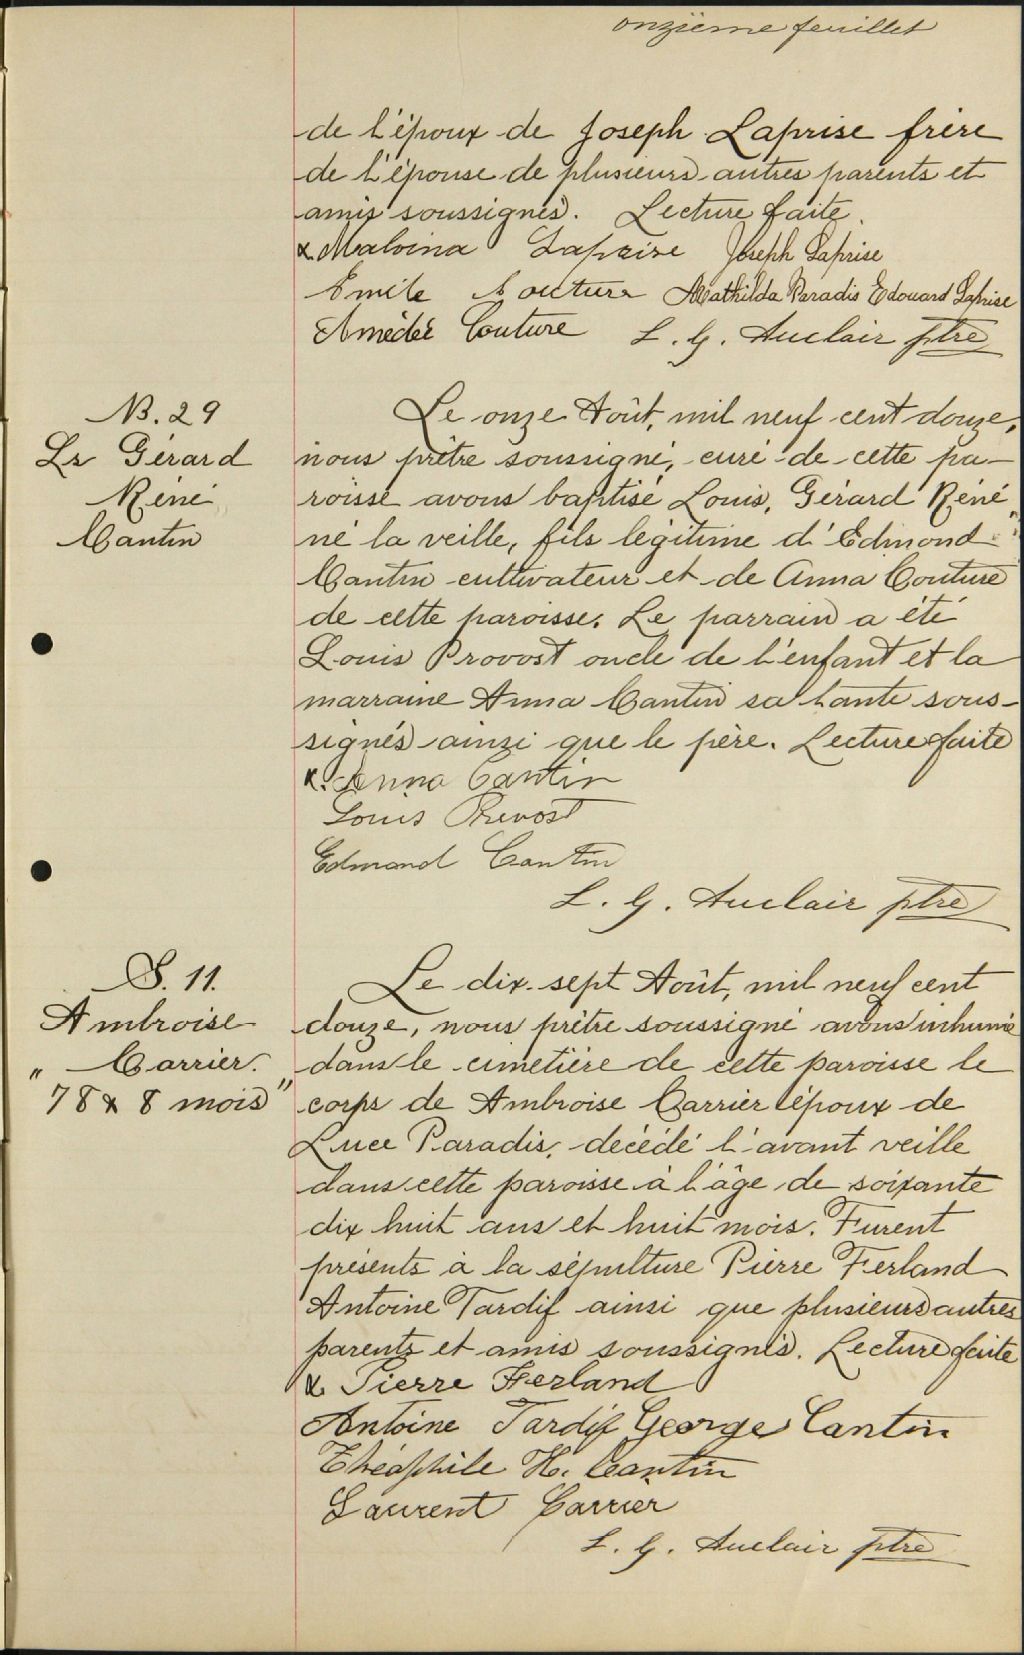 onzième feuillet
de l'époux de Joseph Laprise frère
de l'épouse de plusieurs autres parents et
amis soussignés. Lecture faite.
x Malvina Laprise Joseph Laprise
Emile Couture Mathilda Paradis Edouard Laprise
Amédée Couture L. G. Auclair ptre
B. 29
Ls Gérard
Réné
Cantin
Le onze Août, mil neuf cent douze,
nous prêtre soussigné, curé de cette pa-
roisse avons baptisé Louis, Gérard Réné
né la veille, fils légitime d'Edmond
Cantin cultivateur et de Anna Couture
de cette paroisse. Le parrain a été
Louis Provost oncle de l'enfant et la
marraine Anna Cantin sa tante sous-
signés ainsi que le père. Lecture faite
x. Anna Cantin
Louis Prevost
Edmond Cantin
L. G. Auclair ptre
S. 11.
Ambroise
" Carrier.
78 x 8 mois "
Le dix-sept Août, mil neuf cent
douze, nous prêtre soussigné avons inhumé
dans le cimetière de cette paroisse le
corps de Ambroise Carrier époux de
Luce Paradis, décédé l'avant veille
dans cette paroisse à l'âge de soixante
dix huit ans et huit mois. Furent
présents à la sépulture Pierre Ferland
Antoine Tardif ainsi que plusieurs autres
parents et amis soussignés. Lecture faite
x Pierre Ferland
Antoine Tardif George Cantin
Théophile H. Cantin
Laurent Carrier
L. G. Auclair ptre